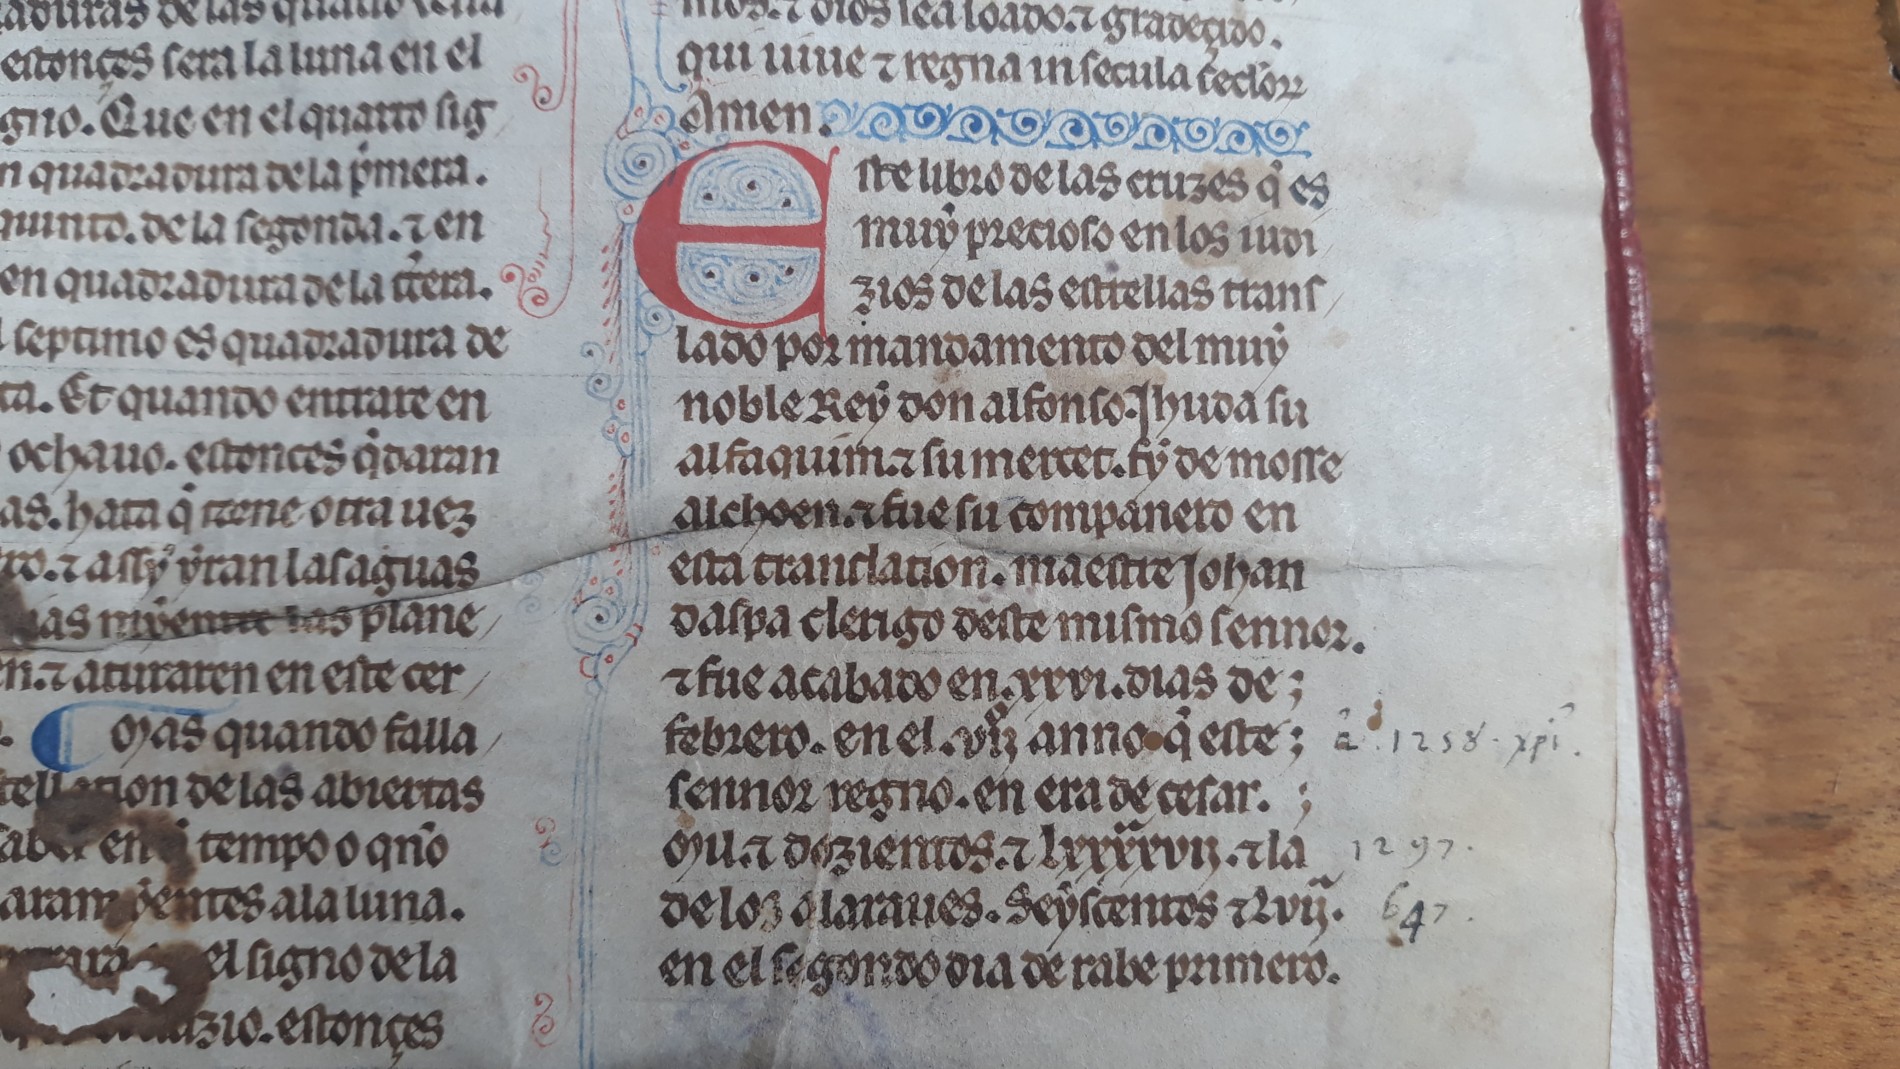 aduras de las quatro
estonçes sera la luna en el
gno. Que en el quarto sig
n quadradura dela pͥmera.
quinto. de la segonda. ⁊ en
en quadradura de la tͥera.
septimo es quadradura de
ta. Et quando entrare en
ochauo. estonces q̃daran
as. hata q̃ torne otra uez
ro. ⁊ assy yran las aguas
las plane
en. ⁊ aturaren en este cer
Mas quando falla
tellation de las abiertas
en q̃ tempo o qño
ala luna.
el signo de la
estonçes
mos. ⁊ dios sea loado. ⁊ gradeçido.
qui uiue ⁊ regna in secula seclorꝝ
Amen.
Este libro de las cruzes q̃ es
muy precioso en los iudi
zios de las estrellas trans
lado por mandamento del muy
noble Rey don alfonso. Jhuda su
alfaquim. ⁊ su mercet. fy de mosse
alchoen. ⁊ fue su companero en
esta translation. maestre Johan
daspa clerigo deste mismo sennor.
⁊ fue acabado en. xxvi. dias de;
febrero. en el. vijº anno q̃ este;
sennor regno. en era de cesar. ;
Mil. ⁊ dozientos. ⁊ lxxxxvij. ⁊ la
de los alaraues. Seyscentos ⁊ xlvij.
en el segondo dia de rabe primero.
a. 1258. xpi.
1297.
647.